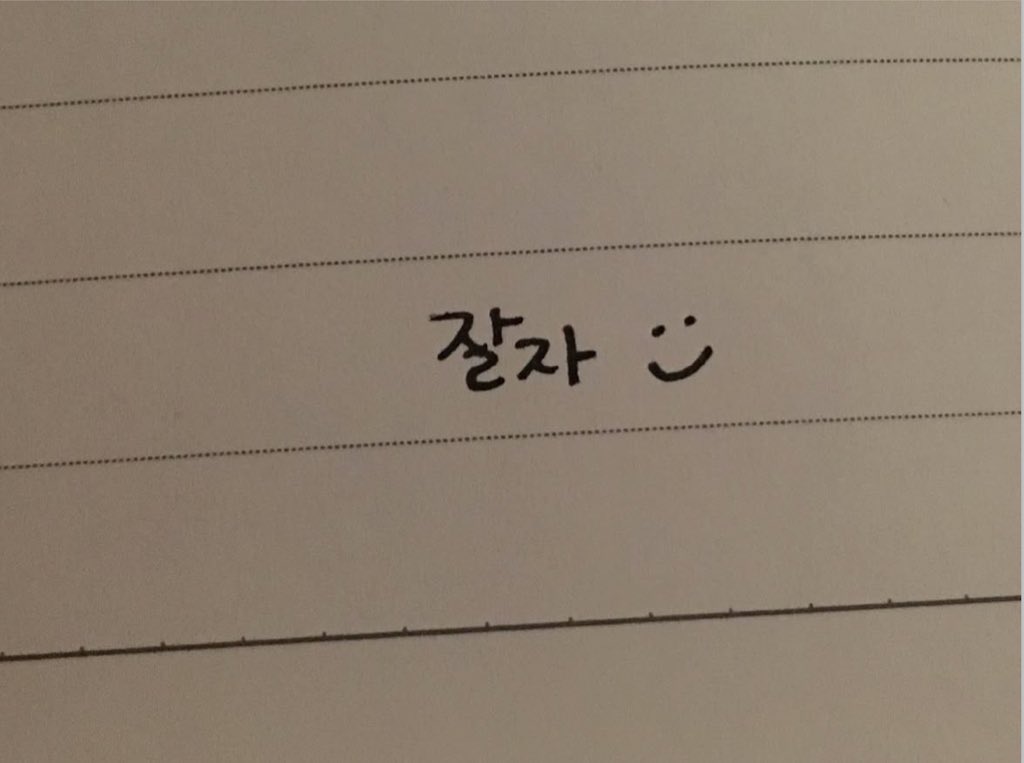 잘자 :)